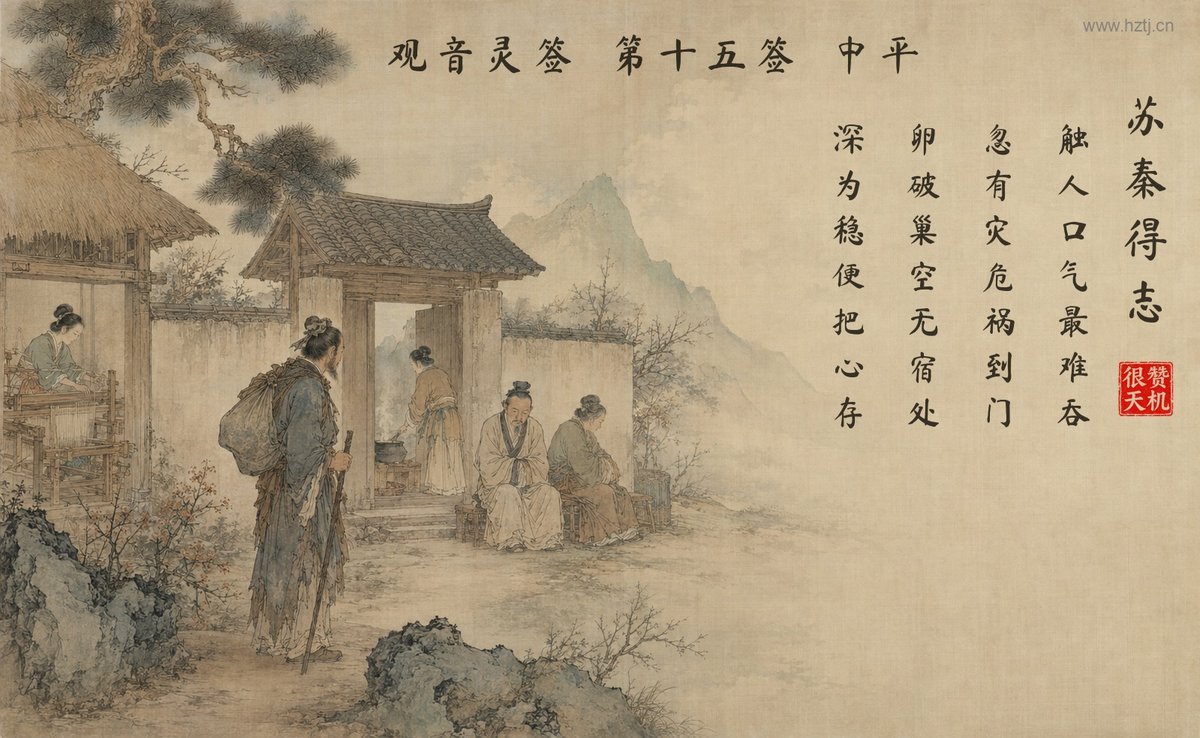 www.hztj.cn
观音灵签 第十五签 中平
苏秦得志
触人口气最难吞
忽有灾危祸到门
卵破巢空无宿处
深为稳便把心存
赞机
很天